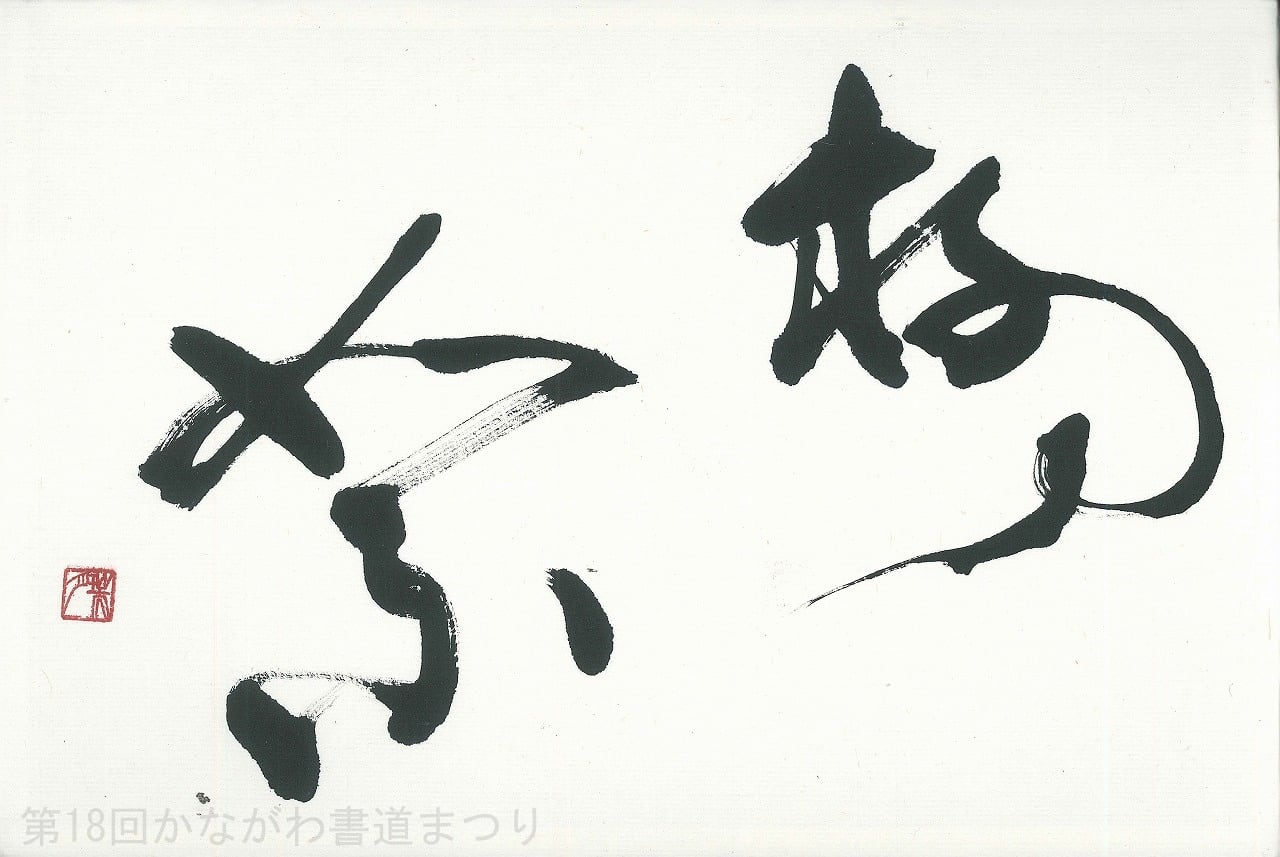 柳
絮
第18回かながわ書道まつり